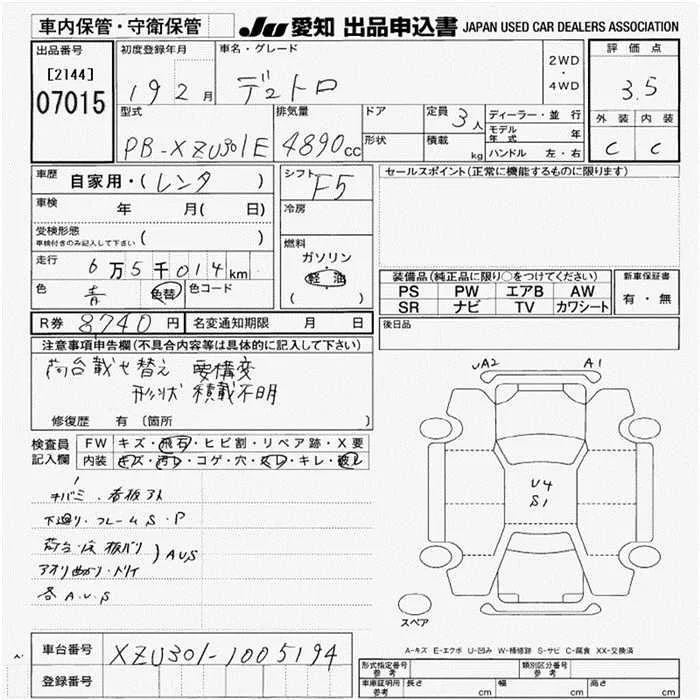 車内保管・守衛保管
JU 愛知 出品申込書 JAPAN USED CAR DEALERS ASSOCIATION
出品番号
[2144]
07015
初度登録年月
192月
車名・グレード
デュトロ
2WD
・
4WD
評価点
3.5
外装 内装
C C
型式
PB-XZU301E
排気量
4890cc
ドア
形状
定員 3人
積載 kg
ディーラー・並行
モデル年式 年
ハンドル 左・右
車歴 自家用・(レンタ )
車検 年 月( 日)
受検形態
車検付きのみ記入して下さい ( )
走行 6万5千014km
色 青 色替 色コード
シフト F5
冷房
燃料
ガソリン
軽油
( )
セールスポイント(正常に機能するものに限ります)
装備品(純正品に限り○をつけてください)
PS PW エアB AW
SR ナビ TV カワシート
新車保証書
有・無
R券 8740円 名変通知期限 月 日
後日品
注意事項申告欄(不具合内容等は具体的に記入して下さい)
荷台載せ替え 要構変
形状 積載不明
修復歴 有 〔箇所 〕
検査員
記入欄
FW キズ・飛石・ヒビ割・リペア跡・X要
内装 キズ・汚レ・コゲ・穴・スレ・キレ・破レ
看板アト
下廻り・フレームS・P
荷台・床 板バリ
AUS
アオリ曲がり・
各A.U.S
UA2 A1
U4
S1
スペア
A-キズ E-エクボ U-凹み W-補修跡 S-サビ C-腐食 XX-交換済
車台番号 XZU301-1005194
登録番号
形式指定番号
参考
類別区分番号
参考
車庫証明用
参考
長さ cm 幅 cm 高さ cm